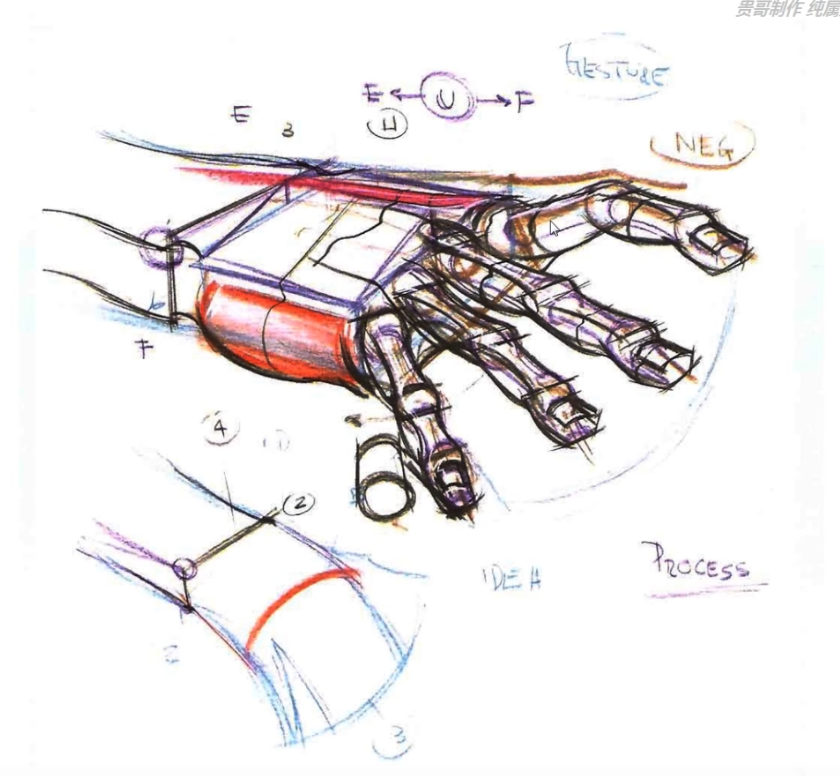 贵哥制作 纯属
GESTURE
E ← U → F
H
E
3
NEG
F
4
2
IDEA
PROCESS
3